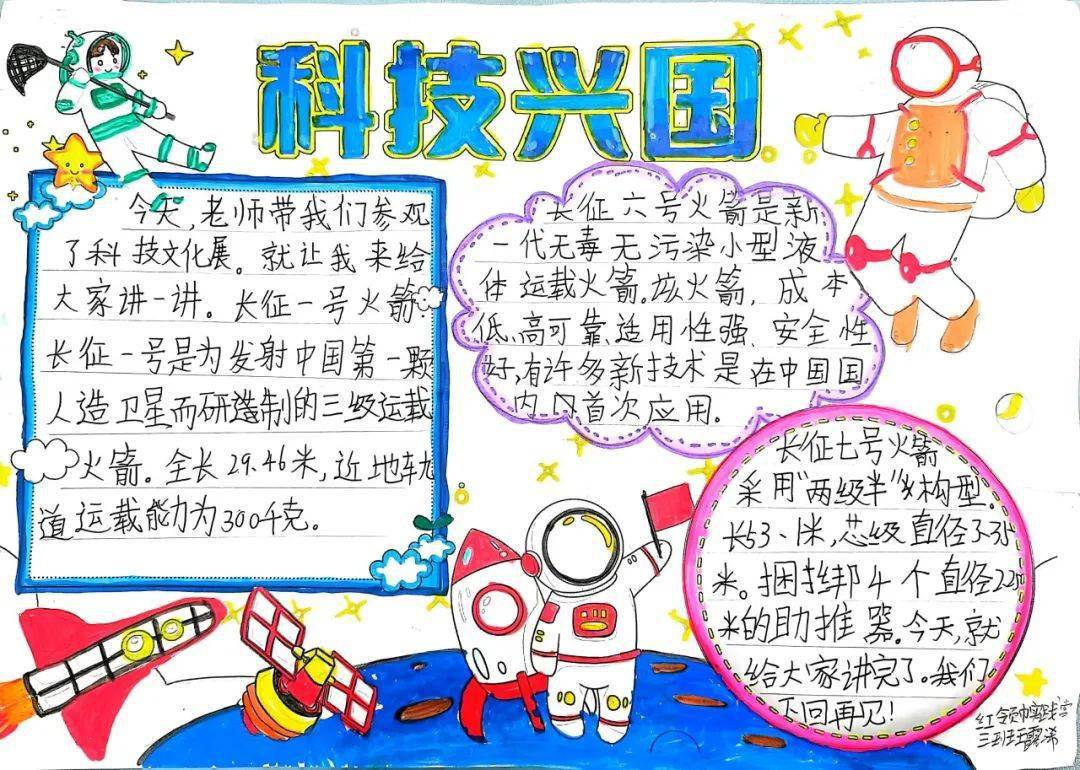 科技兴国
今天,老师带我们参观
了科技文化展。就让我来给
大家讲一讲。长征一号火箭
长征一号是为发射中国第一颗
人造卫星而研造制的三级运载
火箭。全长29.46米,近地轨
道运载能力为300千克。
长征六号火箭是新
一代无毒无污染小型液
体运载火箭。该火箭,成本
低、高可靠、适用性强、安全性
好,有许多新技术是在中国国
内首次应用。
长征七号火箭
采用"两级半"构型。
长53、1米,芯级直径3.35
米。捆绑4个直径2.25
米的助推器。今天,就
给大家讲完了。我们
下回再见!
红领巾实践营
三班王露浠